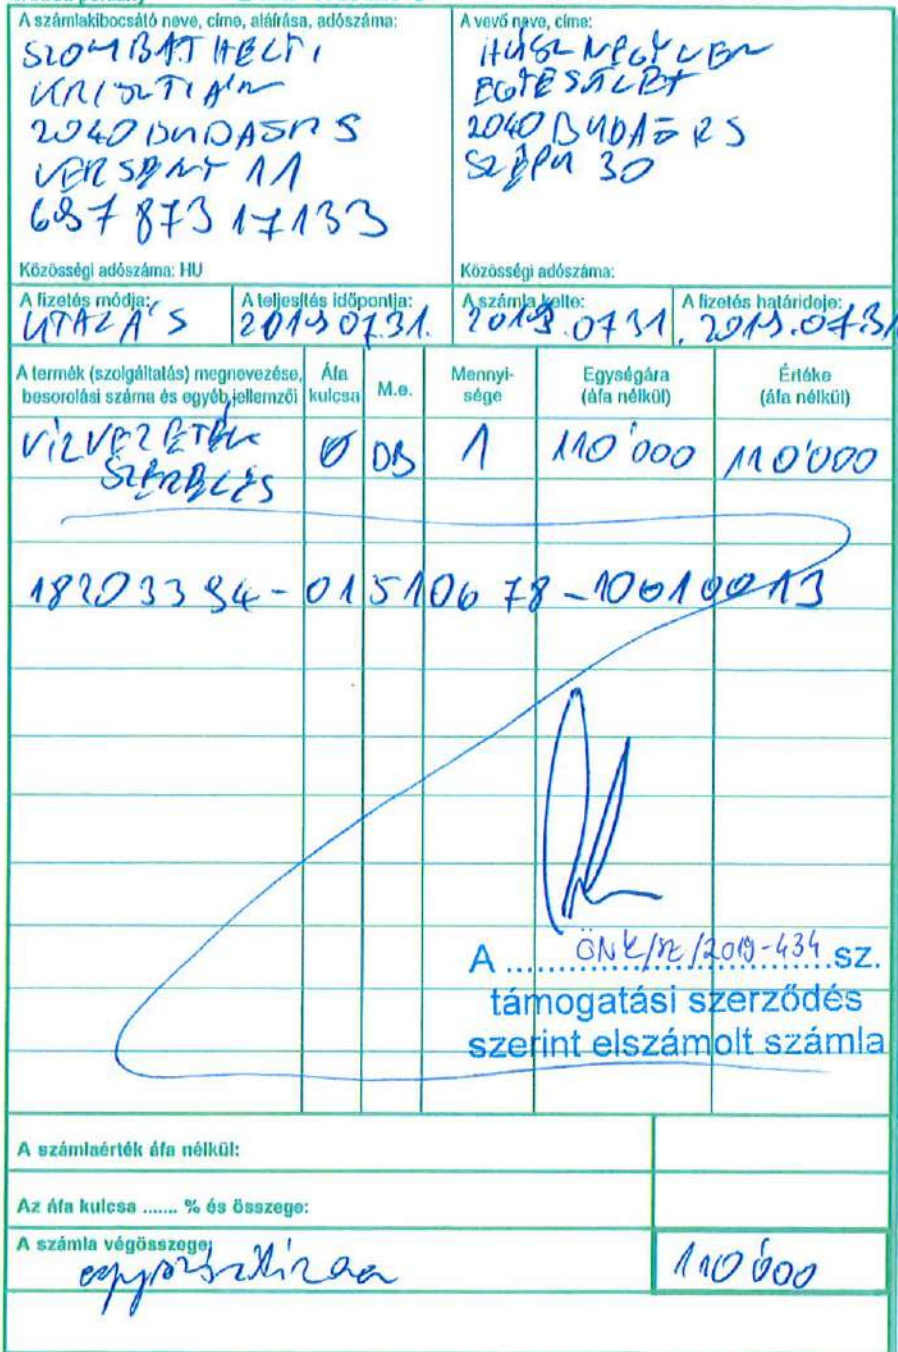 A számlakibocsátó neve, címe, aláírása, adószáma:
SZOMBATHELYI
KRISZTIÁN
2040 BUDAÖRS
VERSENY 11
69787317133
Közösségi adószáma: HU
A vevő neve, címe:
HÚSZ NEGYVEN
EGYESÜLET
2040 BUDAÖRS
30
Közösségi adószáma:
A fizetés módja:
UTALÁS
A teljesítés időpontja:
2019 07.31.
A számla kelte:
2019.0731
A fizetés határideje:
2019.07.31
A termék (szolgáltatás) megnevezése, besorolási száma és egyéb jellemzői
Áfa kulcsa
M.e.
Mennyi-
sége
Egységára
(áfa nélkül)
Értéke
(áfa nélkül)
VÍZVEZETÉK 0 DB 1 110'000 110'000
SZERELÉS
18203394-01510678-10010013
A ONK/SZ/2019-434 sz.
támogatási szerződés
szerint elszámolt számla
A számlaérték áfa nélkül:
Az áfa kulcsa ....... % és összege:
A számla végösszege:
egyszáztízezer 110'000